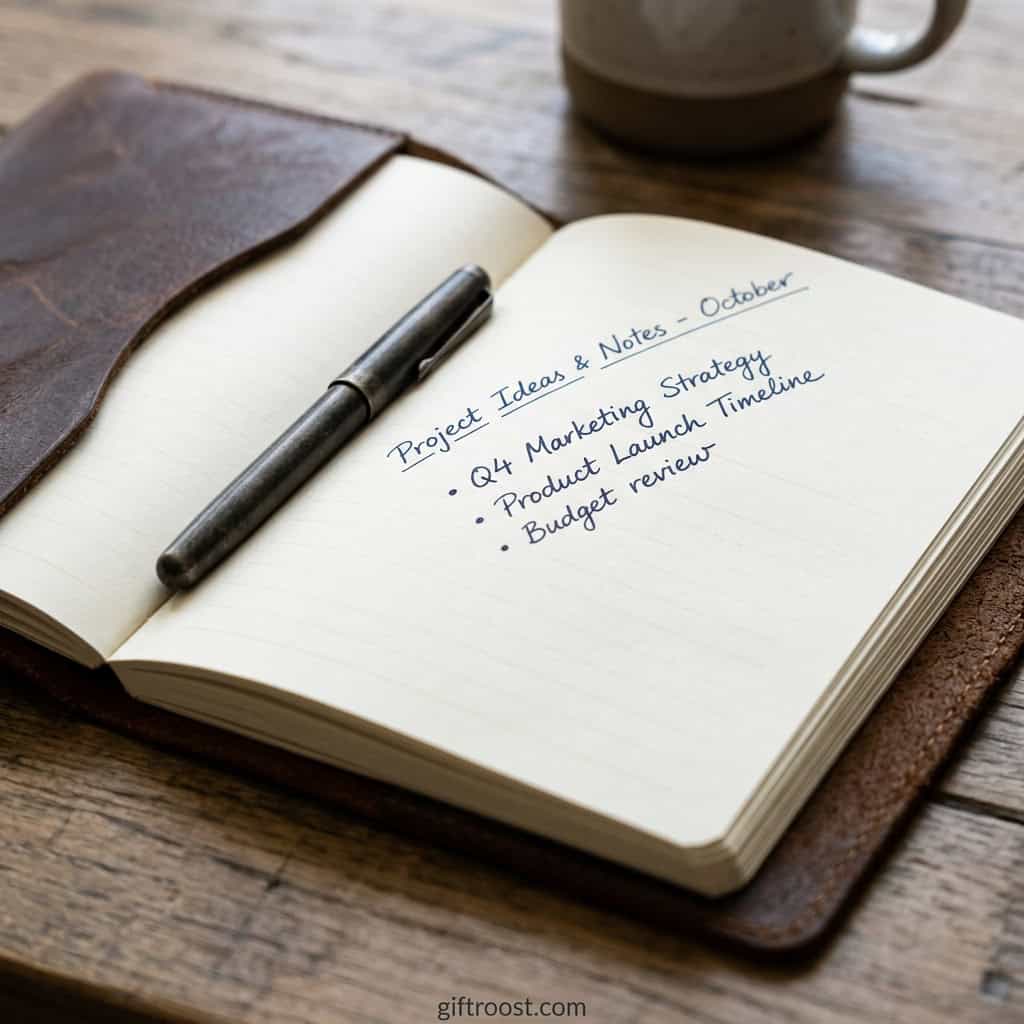 Project Ideas & Notes - October
• Q4 Marketing Strategy
• Product Launch Timeline
• Budget review
giftroost.com